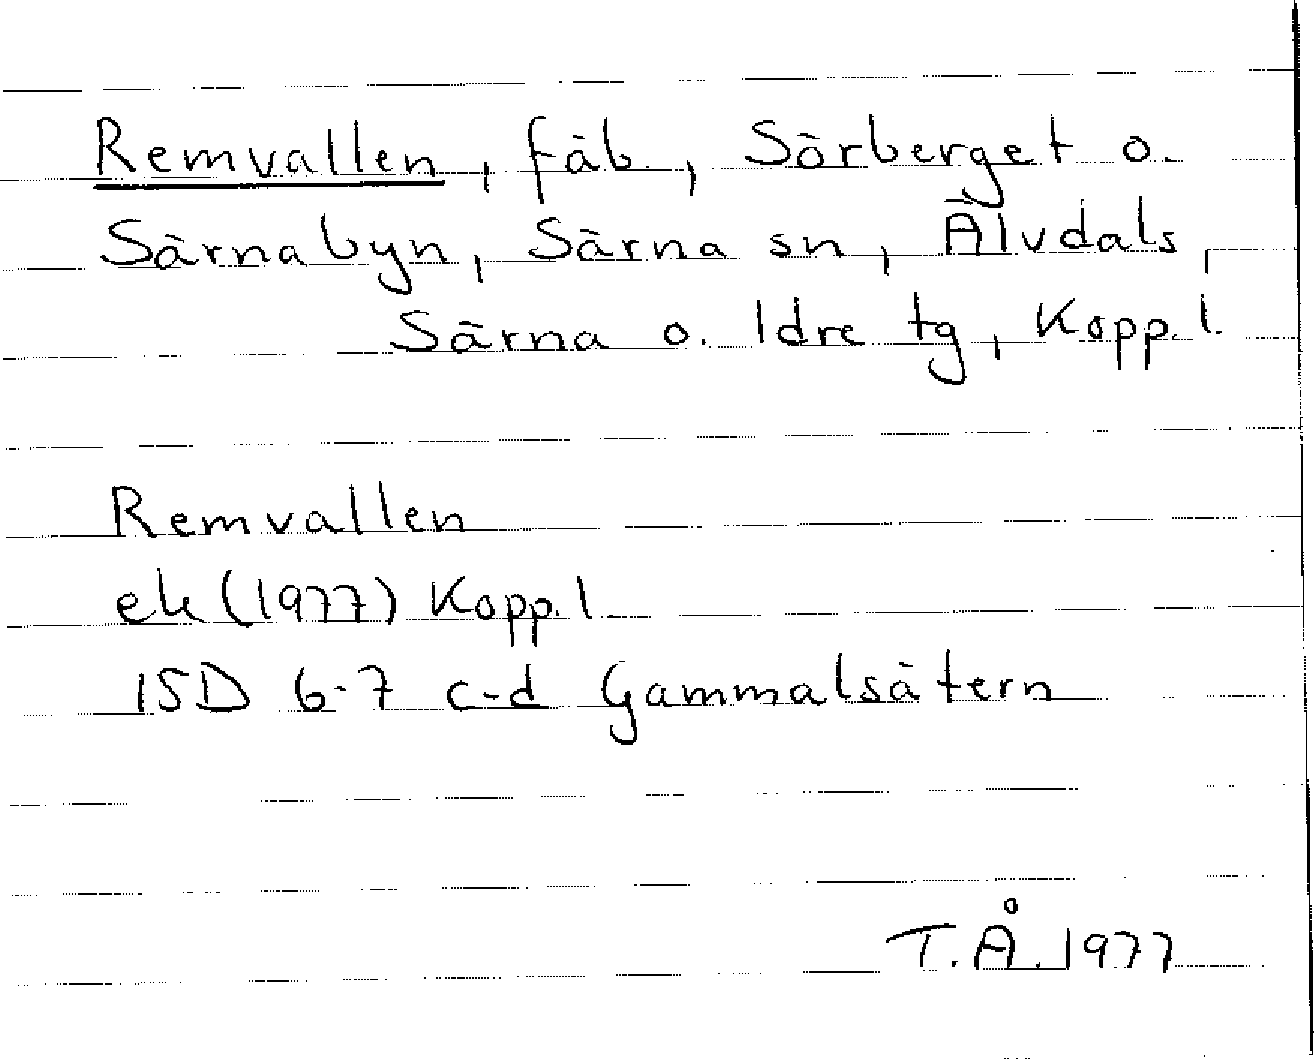 Remvallen, fäb., Sörberget o.
Särnabyn, Särna sn, Älvdals,
Särna o. Idre tg, Kopp.l.
Remvallen
ek (1977) Kopp.l
15D 6-7 c-d Gammalsätern
T.Å. 1977